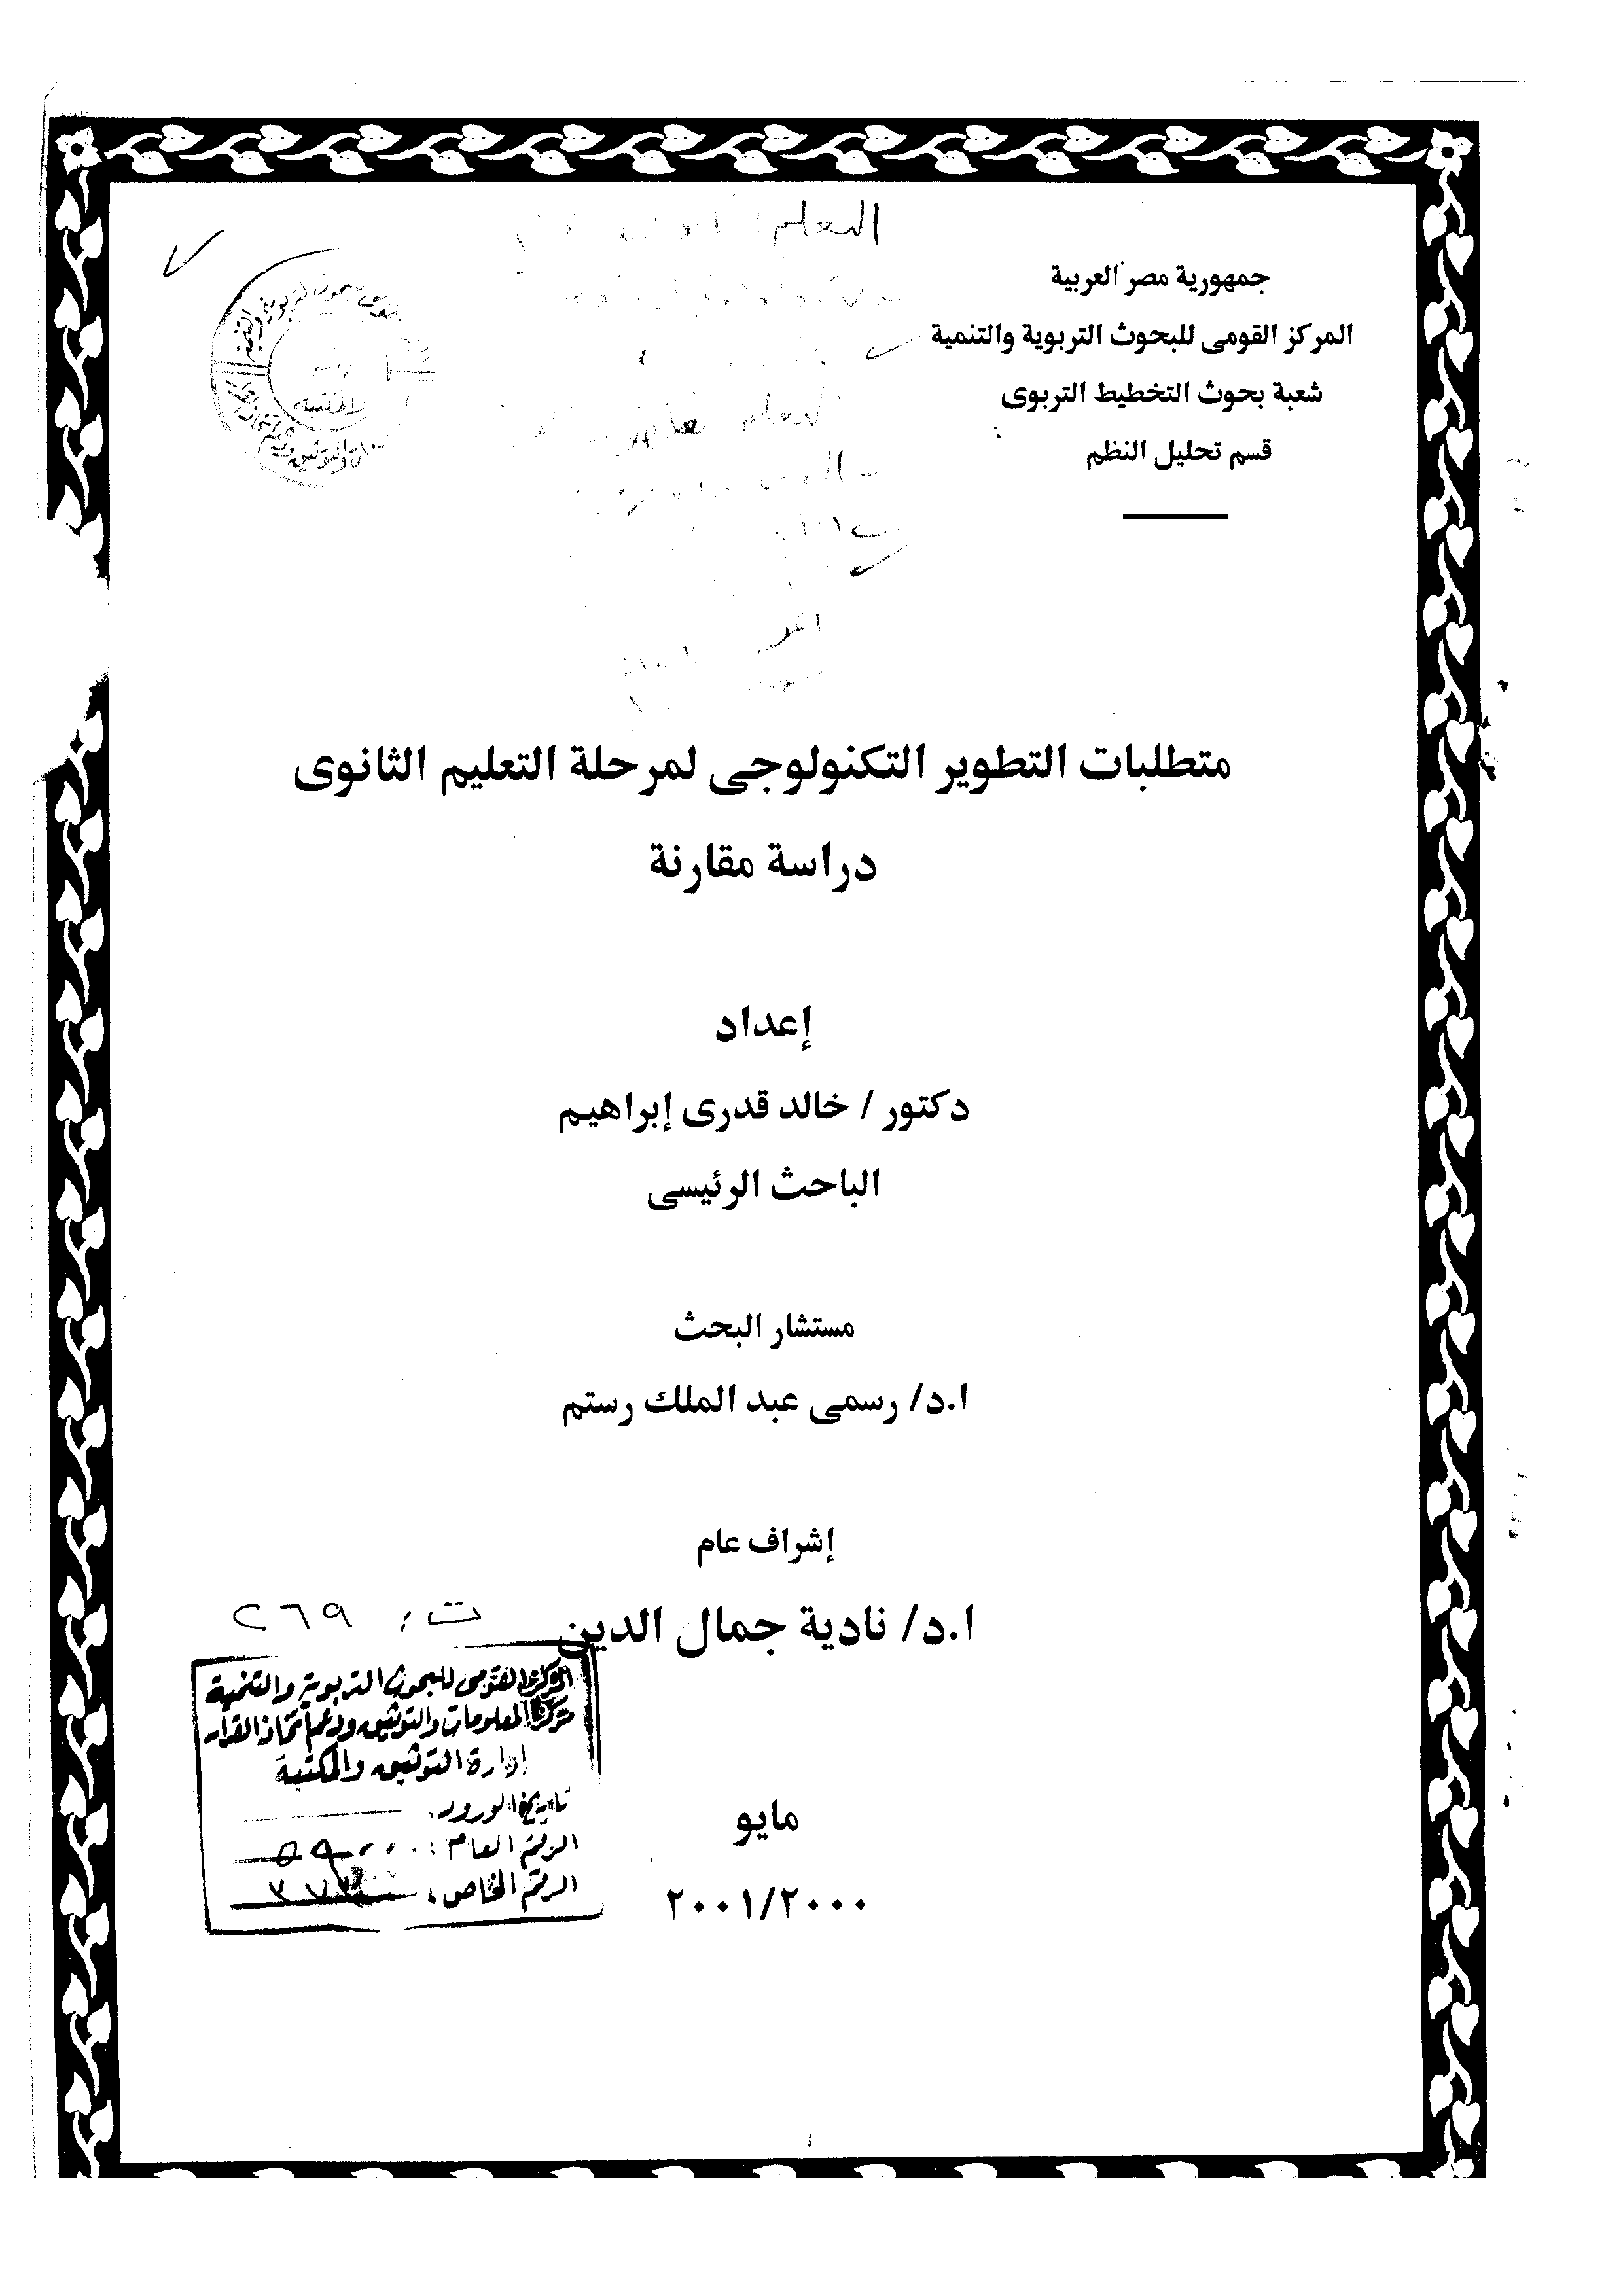 جمهورية مصر العربية
المركز القومى للبحوث التربوية والتنمية
شعبة بحوث التخطيط التربوى
قسم تحليل النظم
متطلبات التطوير التكنولوجى لمرحلة التعليم الثانوى
دراسة مقارنة
إعداد
دكتور / خالد قدرى إبراهيم
الباحث الرئيسى
مستشار البحث
ا.د/ رسمى عبد الملك رستم
إشراف عام
ا.د/ نادية جمال الدين
مايو
٢٠٠١/٢٠٠٠
المركز القومى للبحوث التربوية والتنمية
مركز المعلومات والتوثيق ودعم اتخاذ القرار
إدارة التوثيق والمكتبة
تاريخ الورود:
الرقم العام:
الرقم الخاص: